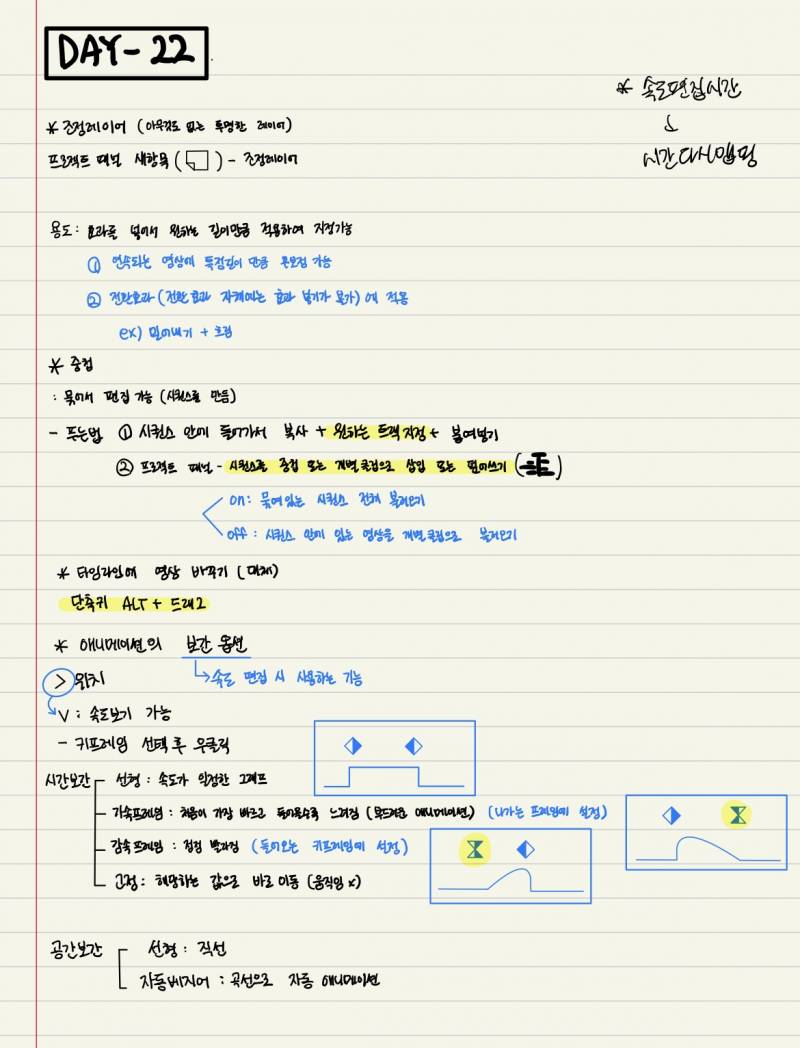 DAY-22
* 속도편집시간
↓
시간다시맵핑
* 조정레이어 (아무것도 없는 투명한 레이어)
프로젝트 패널 새항목 ( ) - 조정레이어
용도 : 효과를 넣어서 원하는 길이만큼 적용하여 지정가능
① 연속되는 영상에 특정길이 만큼 색보정 가능
② 전환효과 (전환효과 자체에는 효과 넣기가 불가) 에 적용
ex) 밀어내기 + 흐림
* 중첩
: 묶어서 편집 가능 (시퀀스를 만듦)
- 푸는법 ① 시퀀스 안에 들어가서 복사 + 원하는 트랙지정 + 붙여넣기
② 프로젝트 패널 - 시퀀스를 중첩 또는 개별클립으로 삽입 또는 덮어쓰기 ( )
on : 묶여있는 시퀀스 전체 불러오기
off : 시퀀스 안에 있는 영상을 개별클립으로 불러오기
* 타임라인에 영상 바꾸기 (대체)
단축키 ALT + 드래그
* 애니메이션의 보간 옵션
→ 속도 편집 시 사용하는 기능
> 위치
V : 속도보기 가능
- 키프레임 선택 후 우클릭
시간보간 선형 : 속도가 일정한 그래프
가속프레임 : 처음이 가장 빠르고 들어올수록 느려짐 (부드러운 애니메이션) (나가는 프레임에 설정)
감속프레임 : 점점 빨라짐 (들어오는 키프레임에 설정)
고정 : 해당하는 값으로 바로 이동 (움직임 x)
공간보간 선형 : 직선
자동베지어 : 곡선으로 자동 애니메이션